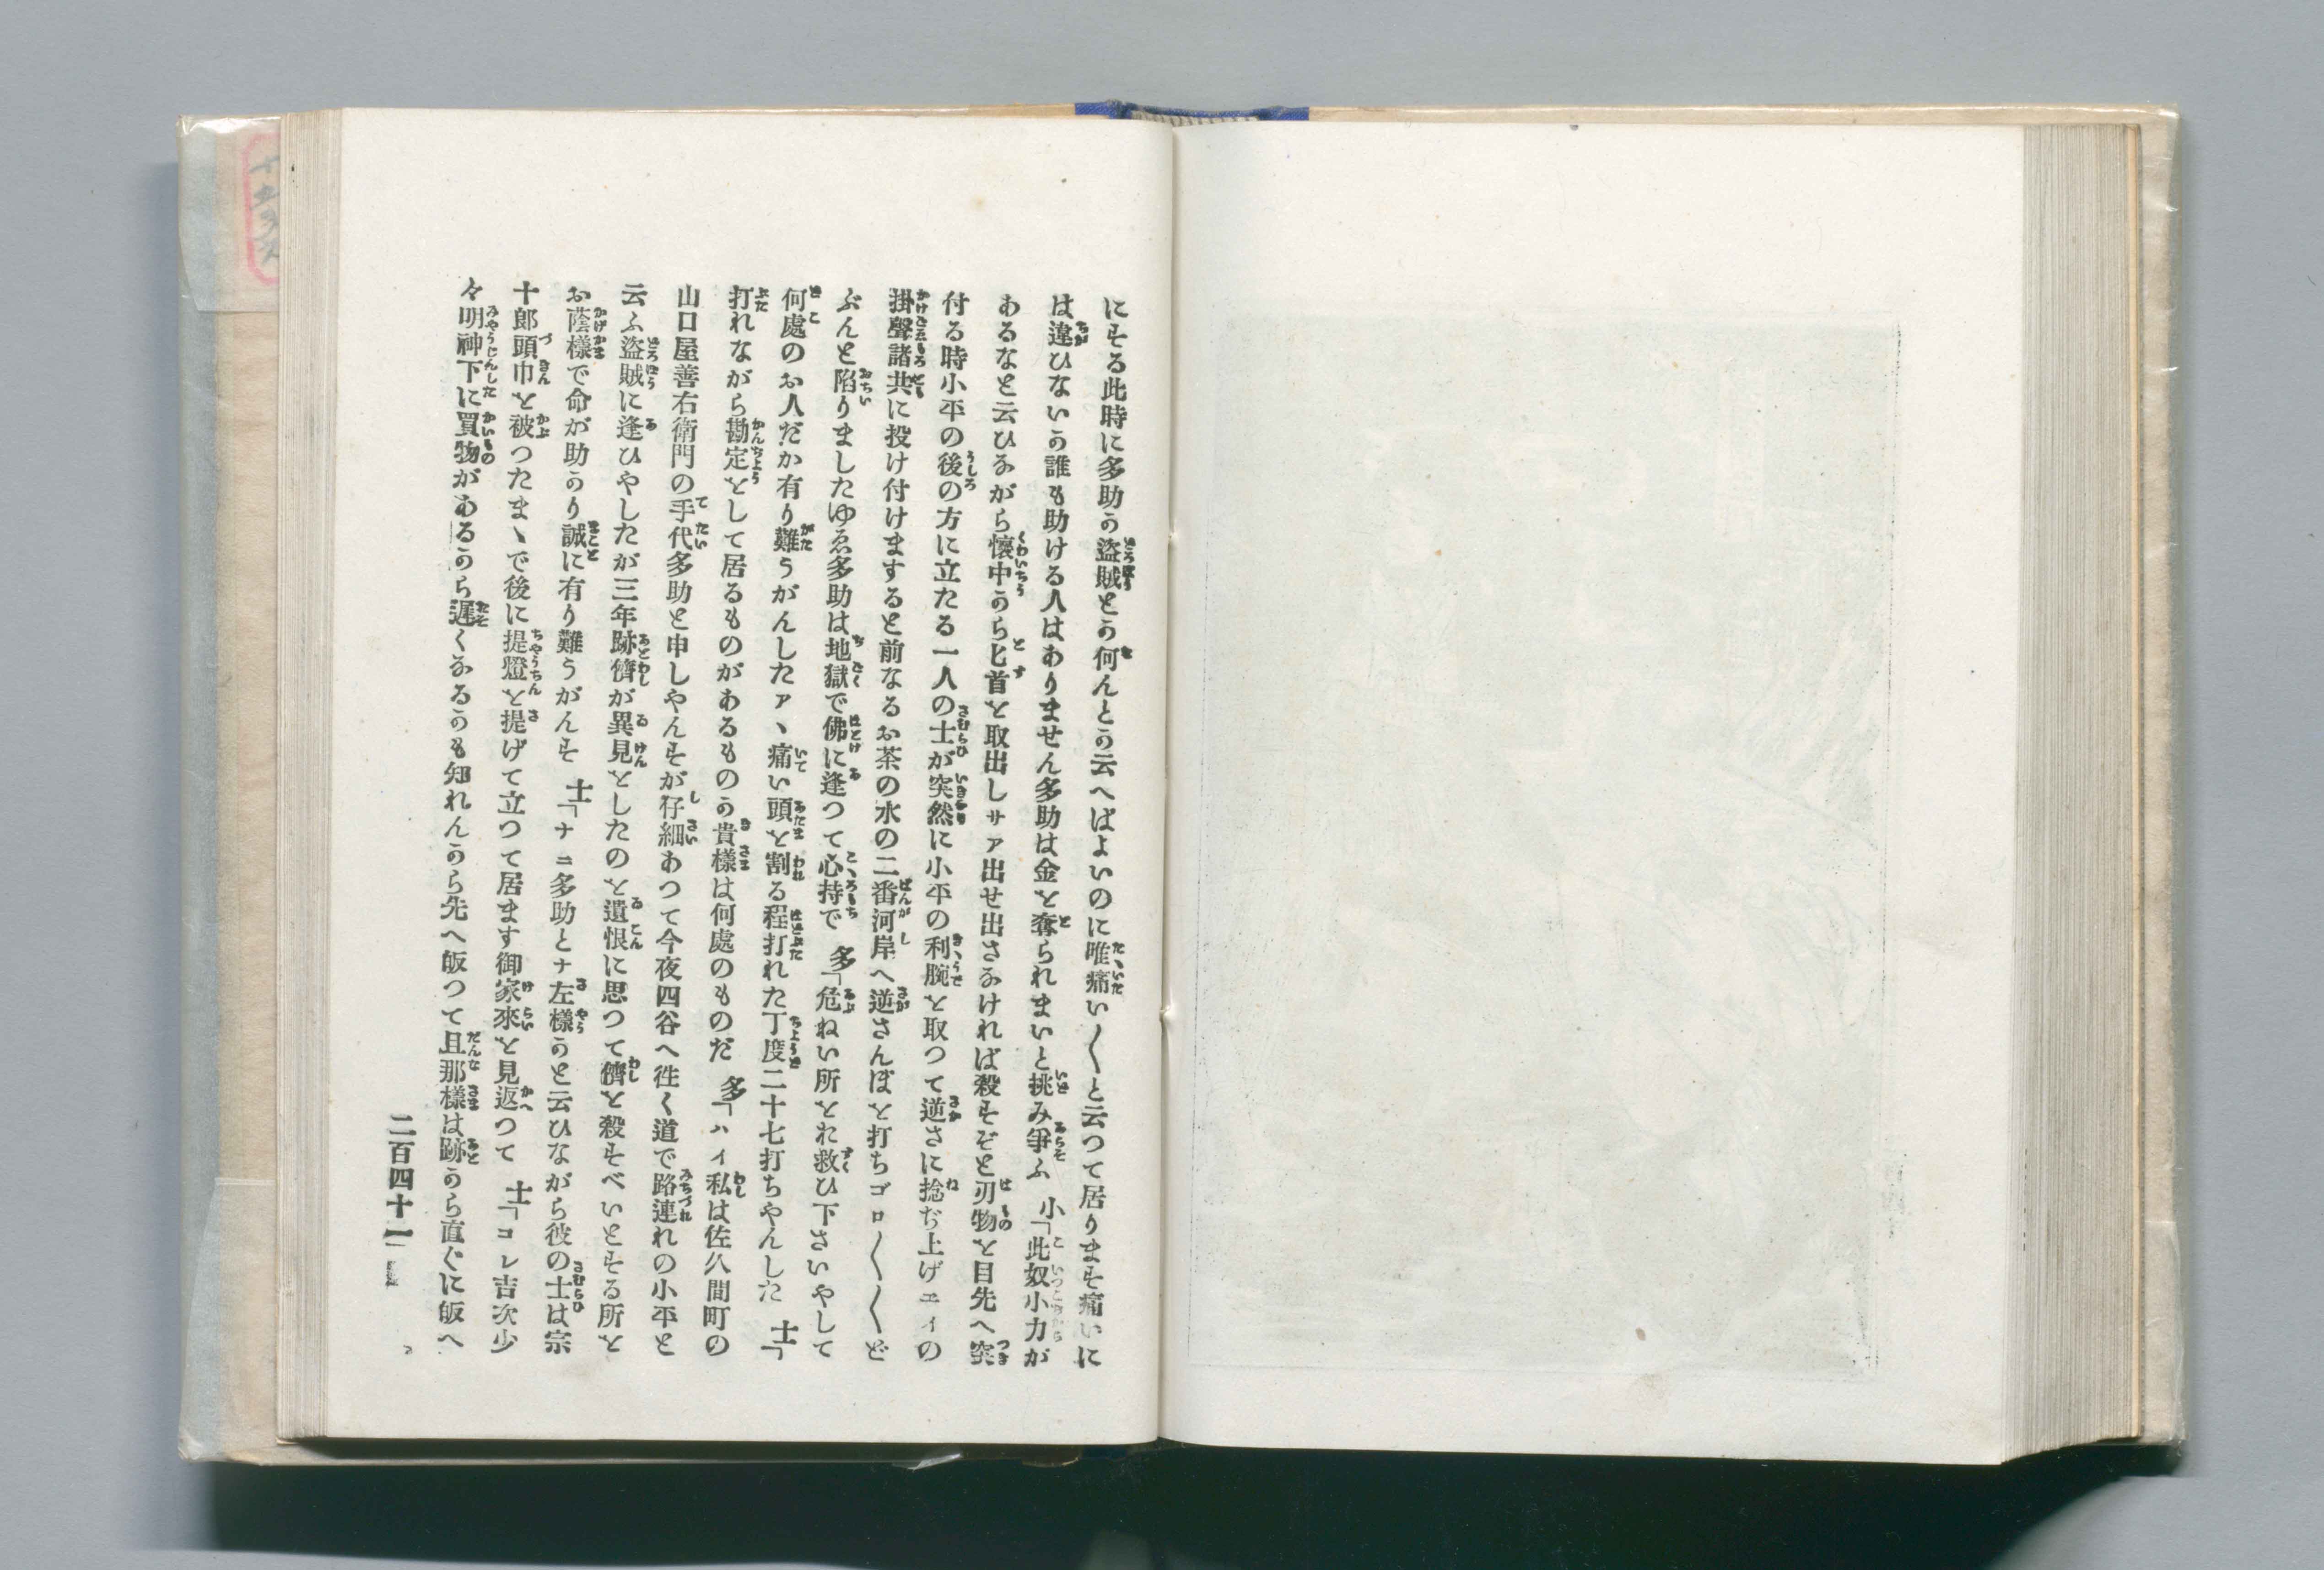 にする此時に多助が盗賊とか何んとか云へばよいのに唯痛い〳〵と云つて居ります痛いに
は違ひないが誰も助ける人はありません多助は金を奪られまいと挑み爭ふ 小「此奴小力が
あるなと云ひながら懷中から匕首を取出しサア出せ出さなければ殺すぞと刃物を目先へ突
付る時小平の後の方に立たる一人の士が突然に小平の利腕を取つて逆さに捻ぢ上げエイの
掛聲諸共に投け付けますると前なるお茶の水の二番河岸へ逆さんぼを打ちゴロ〳〵〳〵ど
ぶんと陷りましたゆゑ多助は地獄で佛に逢つて心持で 多「危ねい所をお救ひ下さいやして
何處のお人だか有り難うがんしたアヽ痛い頭を割る程打れた丁度二十七打ちやんした 士「
打れながら勘定をして居るものがあるものか貴樣は何處のものだ 多「ハイ私は佐久間町の
山口屋善右衛門の手代多助と申しやんすが仔細あつて今夜四谷へ徃く道で路連れの小平と
云ふ盗賊に逢ひやしたが三年跡儕が異見をしたのを遺恨に思つて儕を殺すべいとする所を
お蔭樣で命が助かり誠に有り難うがんす 士「ナニ多助とナ左樣かと云ひながら彼の士は宗
十郎頭巾を被つたまゝで後に提燈を提げて立つて居ます御家來を見返つて 士「コレ吉次少
々明神下に買物があるから遲くなるかも知れんから先へ皈つて且那樣は跡から直ぐに皈へ
二百四十一